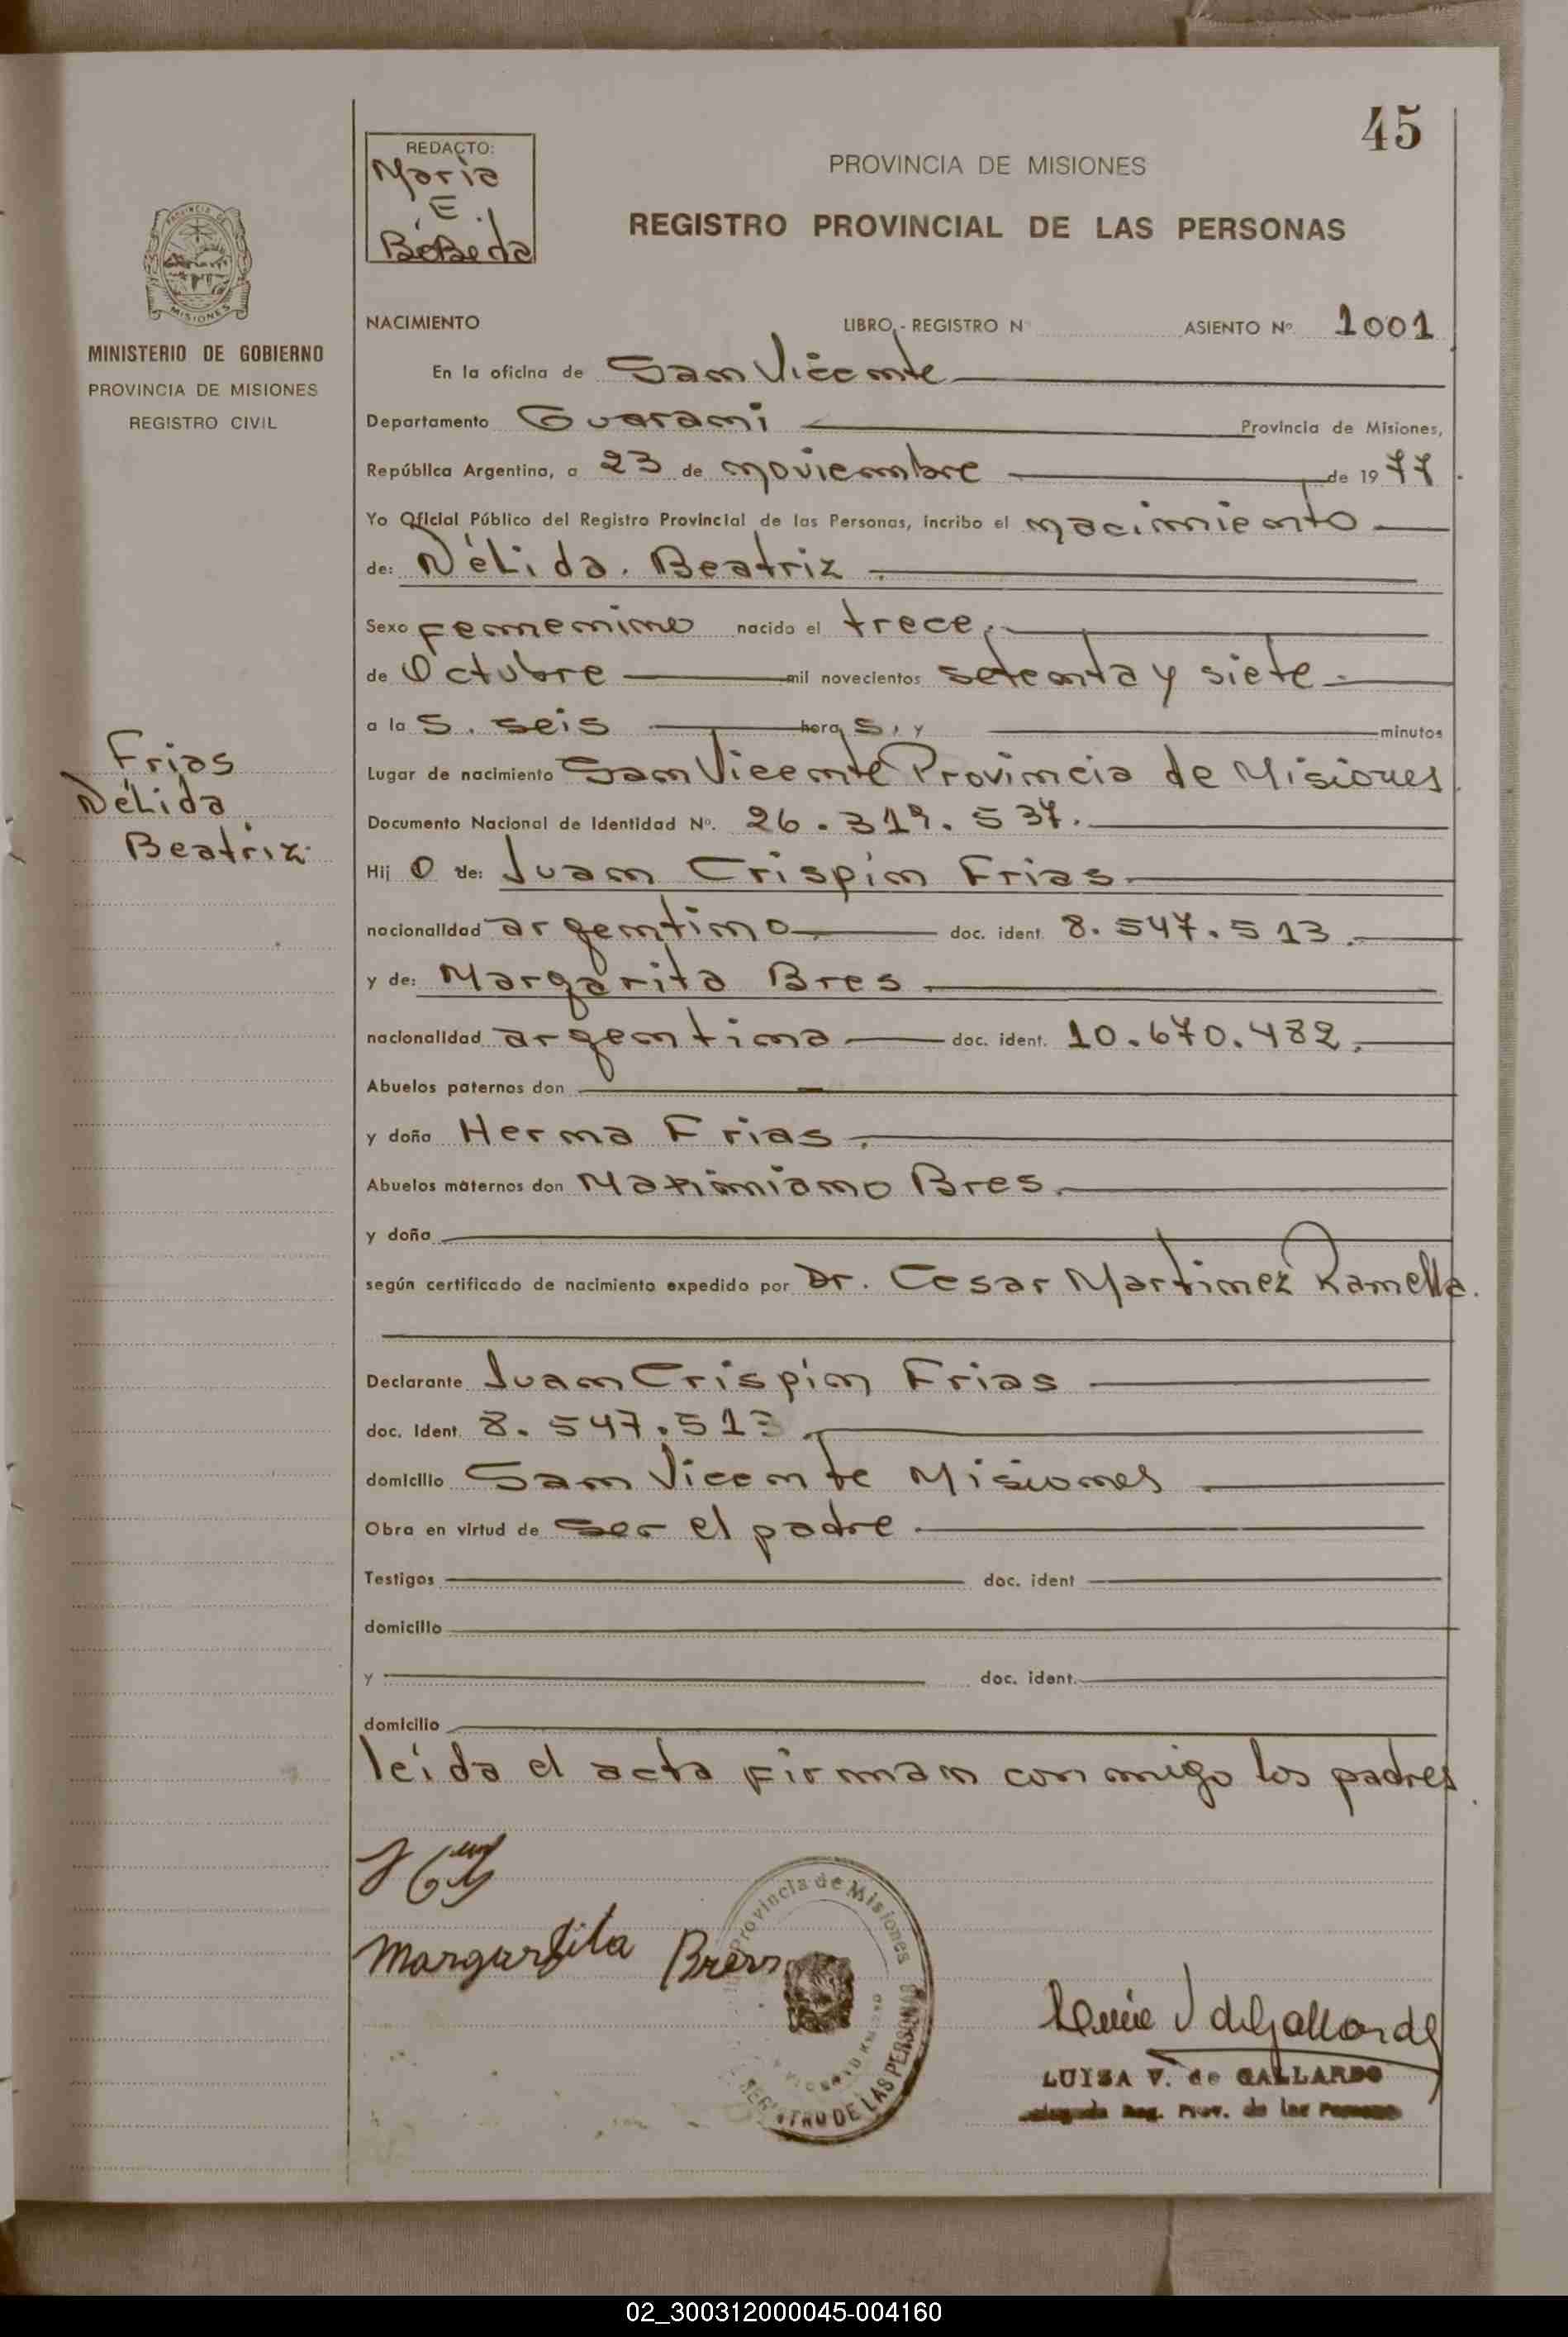 45
REDACTO:
Maria
E.
BoBeda
PROVINCIA DE MISIONES
REGISTRO PROVINCIAL DE LAS PERSONAS
PROVINCIA DE
MISIONES
MINISTERIO DE GOBIERNO
PROVINCIA DE MISIONES
REGISTRO CIVIL
NACIMIENTO LIBRO - REGISTRO Nº ASIENTO Nº 1001
En la oficina de San Vicente
Departamento Guarani Provincia de Misiones,
República Argentina, a 23 de noviembre de 1977.
Yo Oficial Público del Registro Provincial de las Personas, incribo el nacimiento
de: Nélida. Beatriz
Sexo femenino nacido el trece
de Octubre mil novecientos setenta y siete
a la s. seis hora s, y minutos
Frias
Nélida
Beatriz
Lugar de nacimiento San Vicente Provincia de Misiones
Documento Nacional de Identidad Nº. 26.319.537.
Hij o de: Juan Crispín Frias
nacionalidad argentino doc. ident. 8.547.513.
y de: Margarita Bres
nacionalidad argentina doc. ident. 10.670.482.
Abuelos paternos don
y doña Herma Frias
Abuelos maternos don Maximiano Bres
y doña
según certificado de nacimiento expedido por Dr. Cesar Martinez Ramella.
Declarante Juan Crispín Frias
doc. Ident. 8.547.513
domicilio San Vicente Misiones
Obra en virtud de ser el padre
Testigos doc. ident
domicilio
y doc. ident.
domicilio
leída el acta firman conmigo los padres.
Margarita Bres
Provincia de Misiones
REGISTRO DE LAS PERSONAS
LUISA V. de GALLARDO
Delegada Reg. Prov. de las Personas
02_300312000045-004160